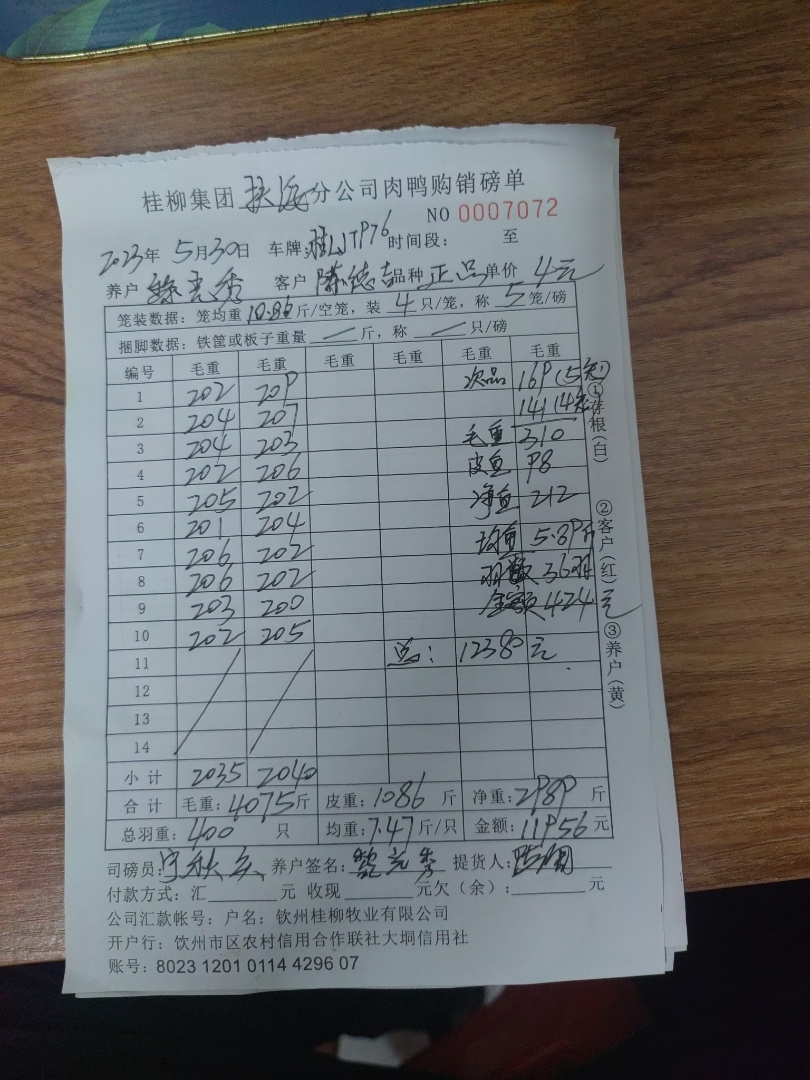 桂柳集团 扶隆 分公司肉鸭购销磅单
NO 0007072
2023年 5月30日 车牌: 时间段： 至
养户 客户 陈德志 品种 正品 单价 4元
笼装数据：笼均重 10.86 斤/空笼，装 4 只/笼，称 5 笼/磅
捆脚数据：铁筐或板子重量 — 斤，称 — 只/磅
编号 毛重 毛重 毛重 毛重 毛重 毛重
1 202 209 次品 169 (5元)
2 204 207 141 (4元)
3 204 203 毛重 310
4 202 206 皮重 98
5 205 202 净重 212
6 201 204 均重 5.89斤
7 206 202 羽数 36羽
8 206 202 金额 424元
9 203 200
10 202 205
11 总： 12380 元
12
13
14
小计 2035 2040
合计 毛重：4075斤 皮重：1086 斤 净重：2989 斤
总羽重：400 只 均重：7.47斤/只 金额：11956 元
司磅员： 养户签名： 提货人：
付款方式：汇 元 收现 元欠（余）： 元
公司汇款帐号：户名：钦州桂柳牧业有限公司
开户行：钦州市区农村信用合作联社大垌信用社
账号：8023 1201 0114 4296 07
①存根（白）
②客户（红）
③养户（黄）